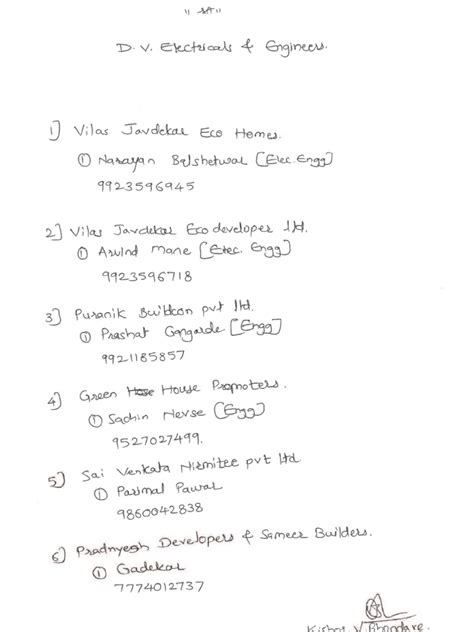 D. V. Electricals & Engineers.
1] Vilas Javdekar Eco Homes.
① Narayan Belshetwar [Elec. Engg]
9923596945
2] Vilas Javdekar Ecodeveloper ltd.
① Arvind Mane [Elec. Engg]
9923596718
3] Puranik Buildcon pvt ltd.
① Prashat Gangarde [Engg]
9921185857
4] Green House Promoters.
① Sachin Nevse [Engg]
9527027499.
5] Sai Venkata Nirmitee pvt ltd
① Parimal Pawar
9860042838
6] Pradnyesh Developers & Sameer Builders.
① Gadekar
7774012737
Kishor V. Bhandare.